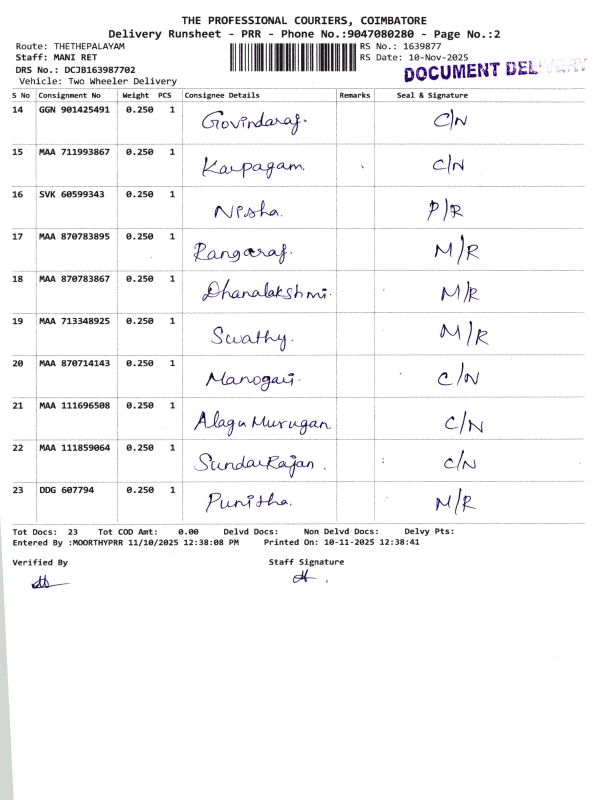 THE PROFESSIONAL COURIERS, COIMBATORE
Delivery Runsheet - PRR - Phone No.:9047080280 - Page No.:2
Route: THETHEPALAYAM RS No.: 1639877
Staff: MANI RET RS Date: 10-Nov-2025
DRS No.: DCJB163987702 DOCUMENT
Vehicle: Two Wheeler Delivery
S No Consignment No Weight PCS Consignee Details Remarks Seal & Signature
14 GGN 901425491 0.250 1 Govindaraj. C/N
15 MAA 711993867 0.250 1 Karpagam. C/N
16 SVK 60599343 0.250 1 Nisha. P/R
17 MAA 870783895 0.250 1 Rangaraj. M/R
18 MAA 870783867 0.250 1 Dhanalakshmi. M/R
19 MAA 713348925 0.250 1 Swathy. M/R
20 MAA 870714143 0.250 1 Manogari. C/N
21 MAA 111696508 0.250 1 Alagu Murugan C/N
22 MAA 111859064 0.250 1 SundarRajan. C/N
23 DDG 607794 0.250 1 Punitha. M/R
Tot Docs: 23 Tot COD Amt: 0.00 Delvd Docs: Non Delvd Docs: Delvy Pts:
Entered By :MOORTHYPRR 11/10/2025 12:38:08 PM Printed On: 10-11-2025 12:38:41
Verified By Staff Signature